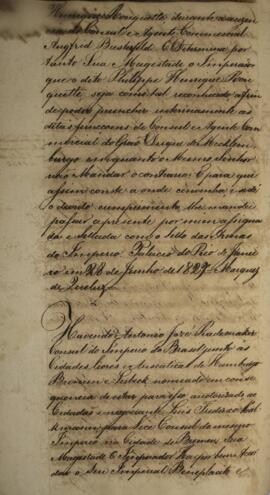 Henrique Bouquette, durante a auzen
cia do Consul e Agente Commercial
Augfred Determina por
tanto Sua Magestade o Imperador
que o dito Philippe Henrique Bou
quette, seja como tal reconhecido afim
de poder preencher interinamente as
ditas funccoens de Consul e Agente Com
mercial do Grão Duque de Mecklem
burgo emquanto o Mesmo Senhor
não Mandar o contrario. E para que
assim conste a onde convenha e se dê
o devido cumprimento lhe mandei
passar a prezente por mim assigna
da e Sellada com o Sello das Armas
do Imperio. Palacio do Rio de Janei
ro em 28 de Junho de 1827 = Marquez
de Queluz =
Havendo Antonio Joze Rademaker
Consul do Imperio do Brasil junto ás
Cidades livres e Anseaticas de Hamburgo
Bremen e Lubeck nomeado em conse
quencia de estar para isso auctorizado ao
Cidadão e negociante Luis Frederico
para Vice Consul do mesmo
Imperio na Cidade de Bremen, Sua
Magestade O Imperador Ha por bem
dar o Seu Imperial Beneplacito